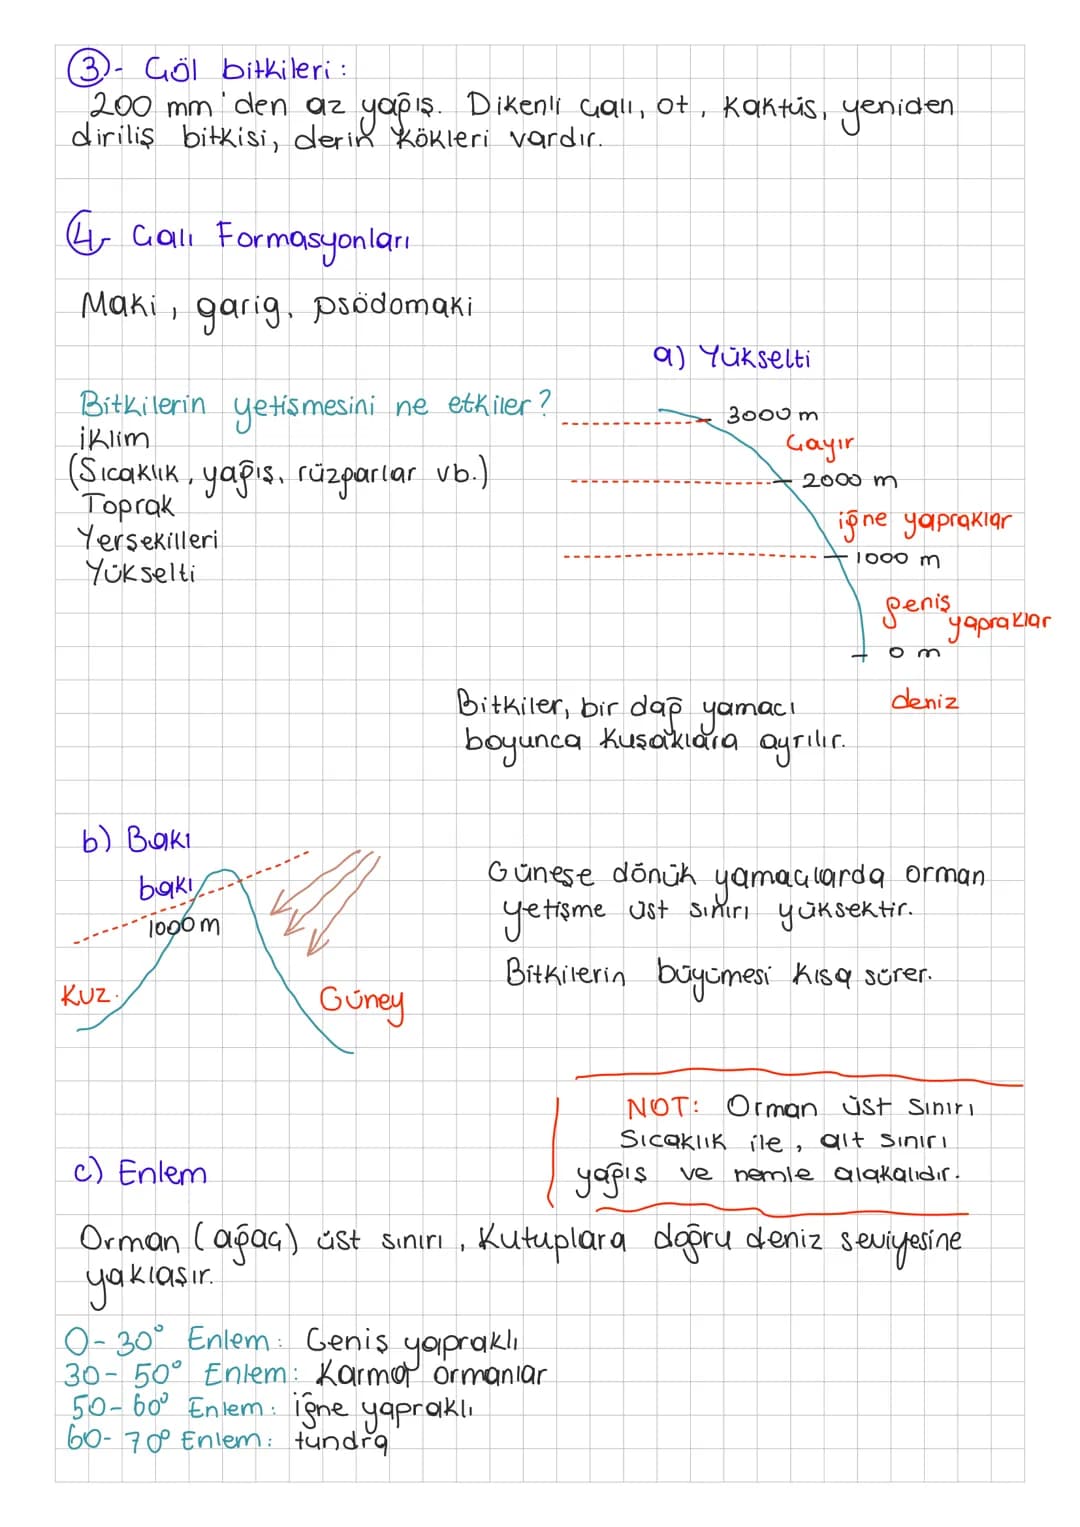 3- Göl bitkileri:
200 mm'den az yağış. Dikenli çalı, ot, kaktüs, yeniden
diriliş bitkisi, derin kökleri vardır.
4- Çalı Formasyonları
Maki, garig, psödomaki
a) Yükselti
Bitkilerin yetişmesini ne etkiler?
iklim
(Sıcaklık, yağış, rüzgarlar vb.)
Toprak
Yerşekilleri
Yükselti
3000 m
Çayır
2000 m
iğne yapraklar
1000 m
geniş
yapraklar
0 m
deniz
Bitkiler, bir dağ yamacı
boyunca kuşaklara ayrılır.
b) Bakı
bakı
1000 m
Kuz.
Güney
Güneşe dönük yamaçlarda orman
yetişme üst sınırı yüksektir.
Bitkilerin büyümesi kısa sürer.
NOT: Orman üst sınırı
sıcaklık ile, alt sınırı
yağış ve nemle alakalıdır.
c) Enlem
Orman (ağaç) üst sınırı, kutuplara doğru deniz seviyesine
yaklaşır.
0-30° Enlem: Geniş yapraklı
30-50° Enlem: Karma ormanlar
50-60° Enlem: iğne yapraklı
60-70° Enlem: tundra